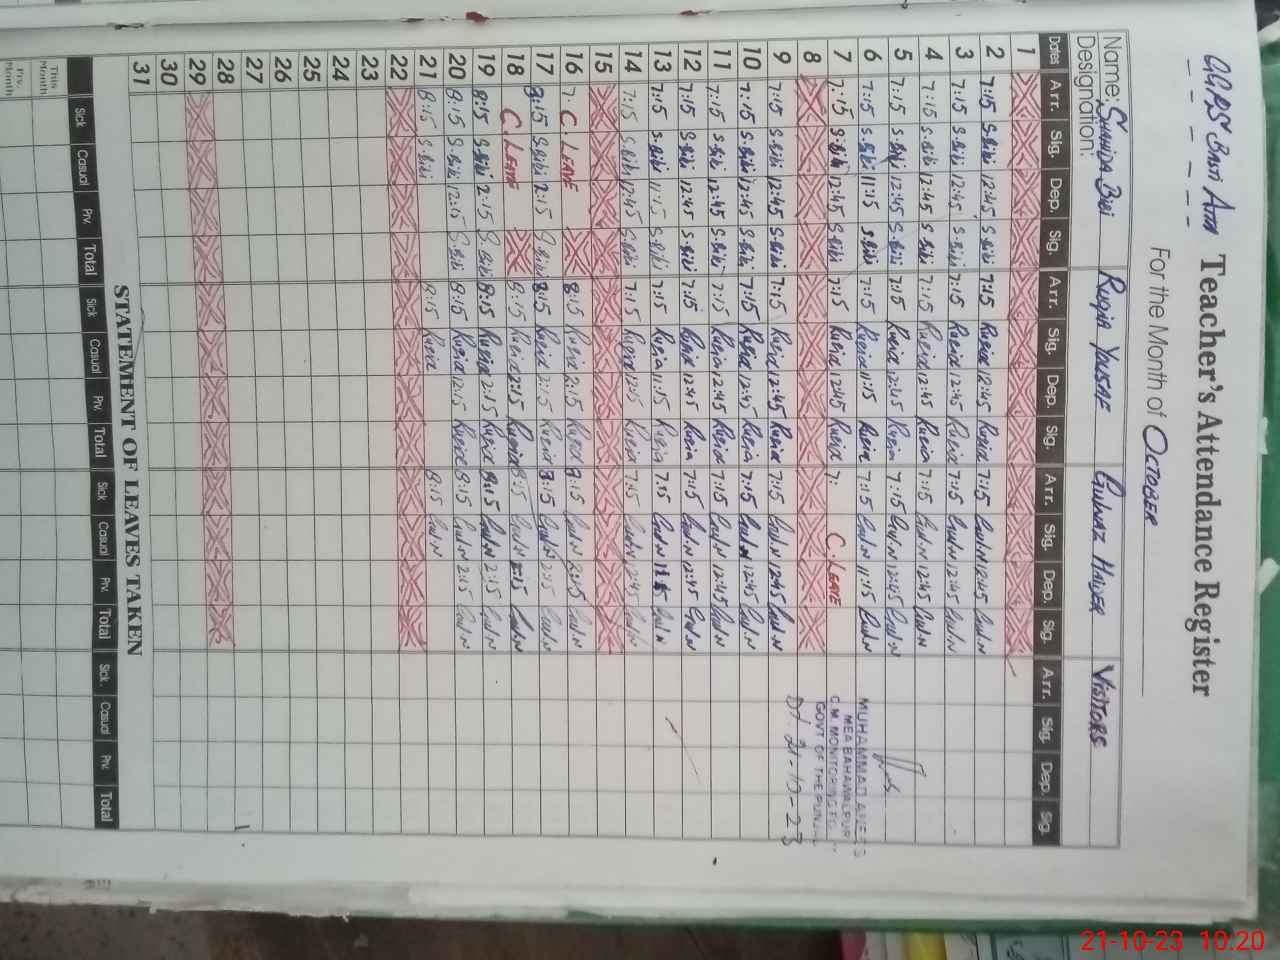 Teacher's Attendance Register
For the Month of October
Name: Ruqia Gulnaz Visitors
Designation:
Dates Arr. Sig. Dep. Sig. Arr. Sig. Dep. Sig. Arr. Sig. Dep. Sig. Arr. Sig. Dep. Sig.
1
2 7:15 S.Bibi 12:45 S.Bibi 7:15 Ruqia 12:45 Ruqia 7:15 Gul.N 12:45 Gul.N
3 7:15 S.Bibi 12:45 S.Bibi 7:15 Ruqia 12:45 Ruqia 7:15 Gul.N 12:45 Gul.N
4 7:15 S.Bibi 12:45 S.Bibi 7:15 Ruqia 12:45 Ruqia 7:15 Gul.N 12:45 Gul.N
5 7:15 S.Bibi 12:45 S.Bibi 7:15 Ruqia 12:45 Ruqia 7:15 Gul.N 12:45 Gul.N
6 7:15 S.Bibi 11:15 S.Bibi 7:15 Ruqia 11:15 Ruqia 7:15 Gul.N 11:15 Gul.N
7 7:15 S.Bibi 12:45 S.Bibi 7:15 Ruqia 12:45 Ruqia 7: C. Leave
8
9 7:15 S.Bibi 12:45 S.Bibi 7:15 Ruqia 12:45 Ruqia 7:15 Gul.N 12:45 Gul.N
10 7:15 S.Bibi 12:45 S.Bibi 7:15 Ruqia 12:45 Ruqia 7:15 Gul.N 12:45 Gul.N
11 7:15 S.Bibi 12:45 S.Bibi 7:15 Ruqia 12:45 Ruqia 7:15 Gul.N 12:45 Gul.N
12 7:15 S.Bibi 12:45 S.Bibi 7:15 Ruqia 12:45 Ruqia 7:15 Gul.N 12:45 Gul.N
13 7:15 S.Bibi 11:15 S.Bibi 7:15 Ruqia 11:15 Ruqia 7:15 Gul.N Gul.N
14 7:15 S.Bibi 12:45 S.Bibi 7:15 Ruqia 12:45 Ruqia 7:15 Gul.N 12:45 Gul.N
15
16 7: C. Leave 8:15 Ruqia 2:15 Ruqia 8:15 Gul.N 2:15 Gul.N
17 8:15 S.Bibi 2:15 S.Bibi 8:15 Ruqia 2:15 Ruqia 8:15 Gul.N 2:15 Gul.N
18 C. Leave 8:15 Ruqia 2:15 Ruqia 8:15 Gul.N 2:15 Gul.N
19 8:15 S.Bibi 2:15 S.Bibi 8:15 Ruqia 2:15 Ruqia 8:15 Gul.N 2:15 Gul.N
20 8:15 S.Bibi 12:15 S.Bibi 8:15 Ruqia 12:15 Ruqia 8:15 Gul.N 2:15 Gul.N
21 8:15 S.Bibi 8:15 Ruqia 8:15 Gul.N
22
23
24
25
26
27
28
29
30
31
MUHAMMAD
MEA BAHAWALPUR
C.M. MONITORING
GOVT OF THE PUNJAB
Dt. 21-10-23
STATEMENT OF LEAVES TAKEN
Sick Casual Prv. Total Sick Casual Prv. Total Sick Casual Prv. Total Sick. Casual Prv. Total
This Month
Prv. Month
21-10-23 10:20